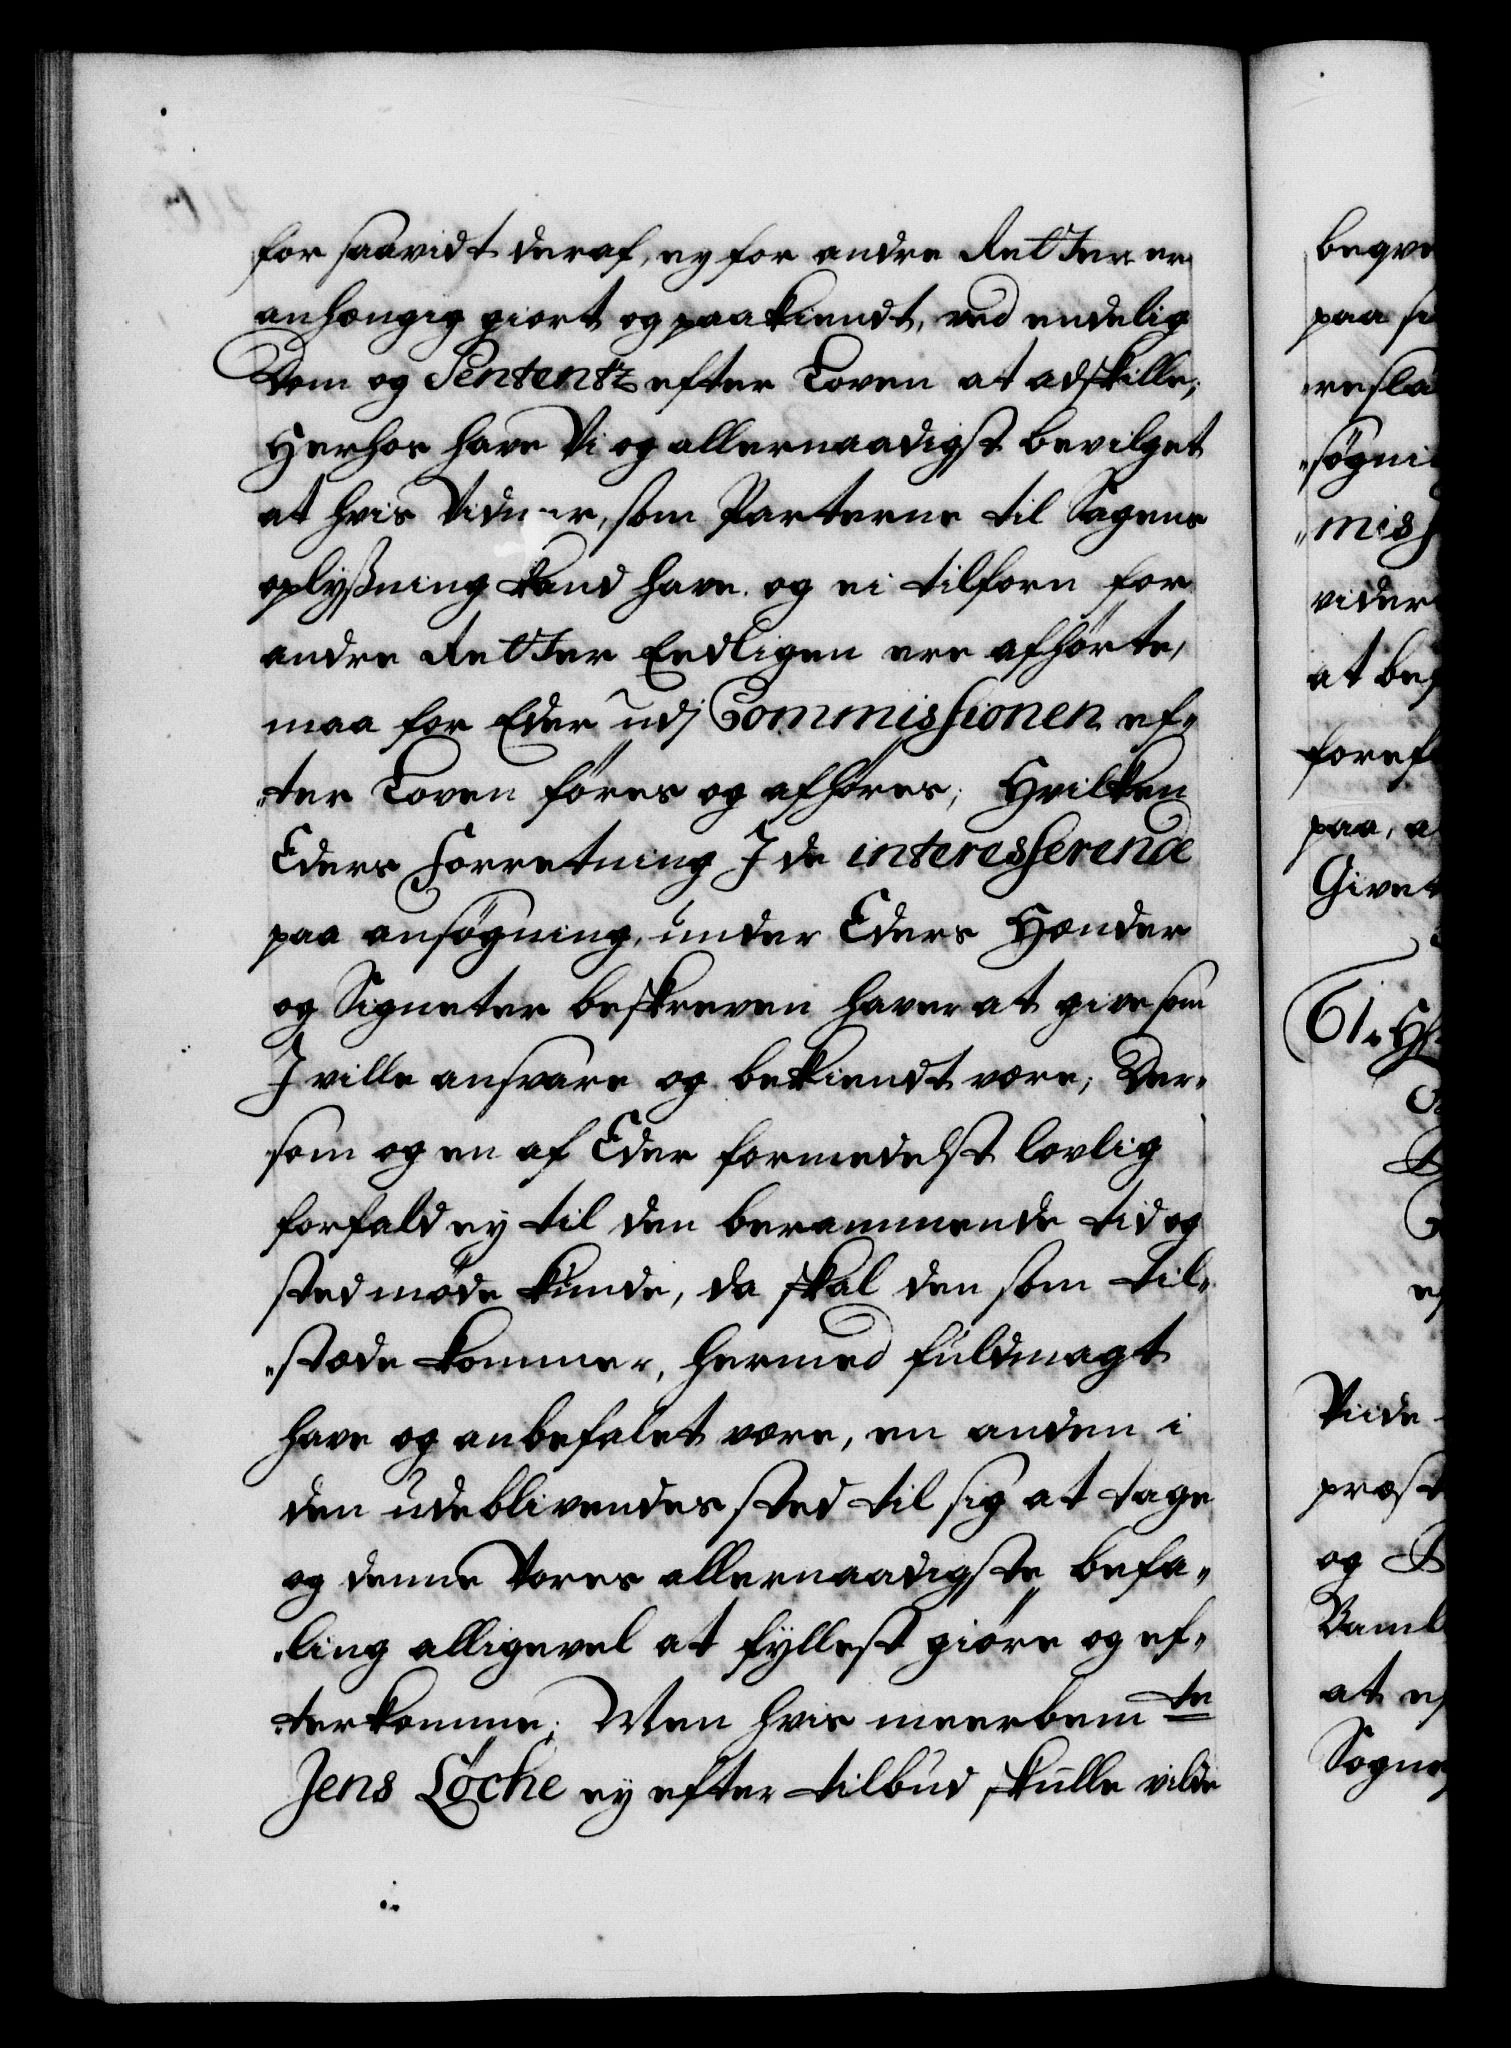 for saavidt deraf, ey for andre Retter er
anhængig giort og paakiendt, ved endelig
Dom og Sententz efter Loven at adskille;
Herhos have Vi og allernaadigst bevilget
at hvis Vidner, som Parterne til Sagens
oplysning kand have og ei tilforn for
andre Retter Eedligen ere afhørte,
maa for Eder udj Commissionen ef„
„ter Loven føres og afhøres; Hvilken
Eders Forretning I de interesserende
paa ansøgning, under Eders Hænder
og Signeter beskreven haver at give som
I ville ansvare og bekiendt være; Der„
som og en af Eder formedelst lovlig
forfald ey til den berammende tid og
sted møde kunde, da skal den som til„
„stæde kommer, hermed fuldmagt
have og anbefalet være, en anden i
den udeblivendes sted til sig at tage
og denne Vores allernaadigste befa„
„ling alligevel at fyllest giøre og ef„
„terkomme; Men hvis meerbem te
Jens Løche ey efter tilbud skulle vilde
paa
Givet
61.
vider
og